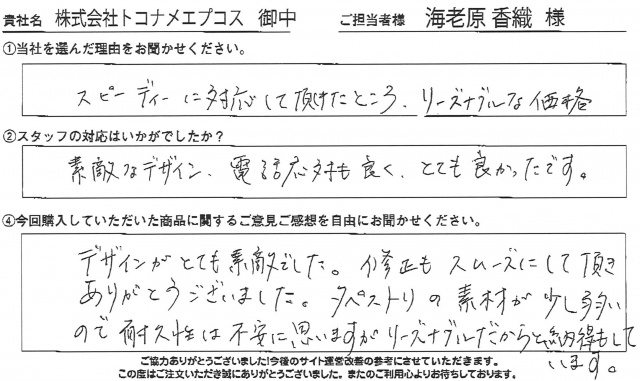 貴社名 株式会社トコナメエプコス 御中 ご担当者様 海老原 香織 様
①当社を選んだ理由をお聞かせください。
スピーディーに対応して頂けたところ、リーズナブルな価格
②スタッフの対応はいかがでしたか?
素敵なデザイン、電話応対も良く、とても良かったです。
④今回購入していただいた商品に関するご意見ご感想を自由にお聞かせください。
デザインがとても素敵でした。修正もスムーズにして頂き
ありがとうございました。タペストリの素材が少し
ので耐久性は不安に思いますがリーズナブルだからと納得もして
います。
ご協力ありがとうございました!今後のサイト運営改善の参考にさせていただきます。
この度はご注文いただき誠にありがとうございました。またのご利用心よりお待ちしております。